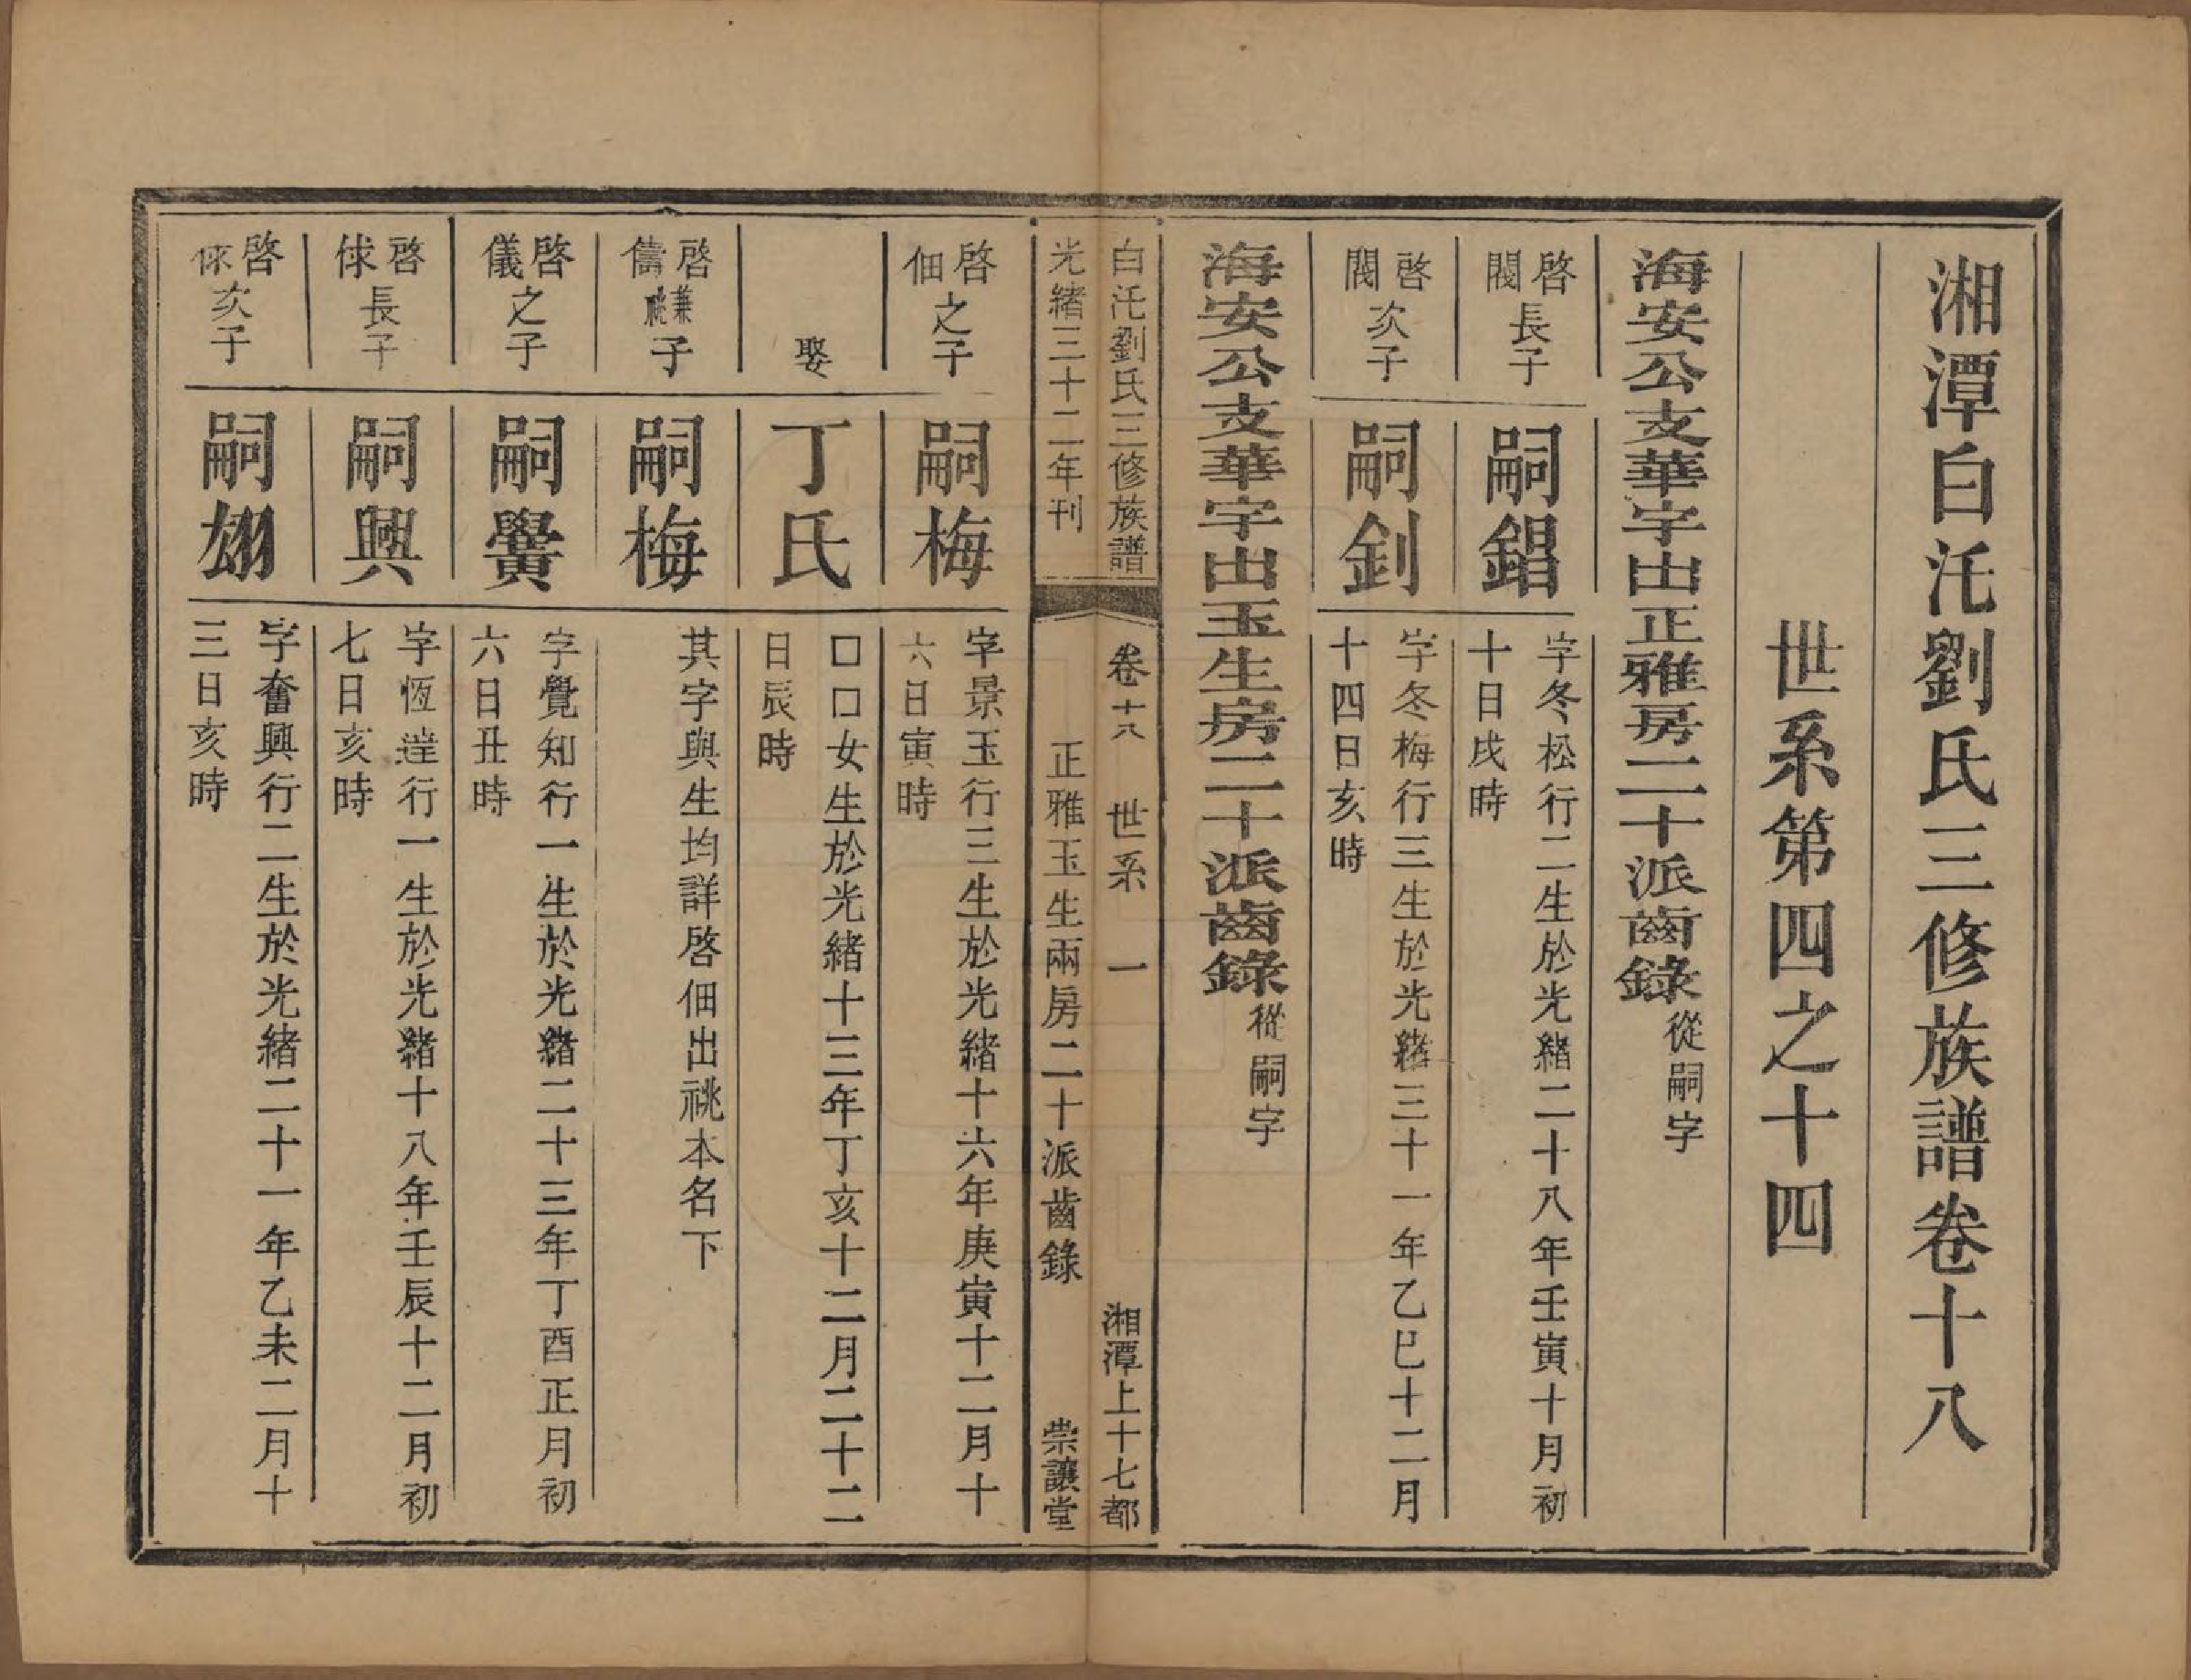 湘潭白汑劉氏三修族譜卷十八
世系第四之十四
海安公支華字出正雅房二十派齒錄從嗣字
啓閥長子
嗣錩
字冬松行二生於光緒二十八年壬寅十月初
十日戌時
啓閥次子
嗣釗
字冬梅行三生於光緒三十一年乙巳十二月
十四日亥時
海安公支華字出玉生房二十派齒錄從嗣字
白汑劉氏三修族譜
卷十八
世系
一
湘潭上十七都
光緒三十二年刊
正雅玉生兩房二十派齒錄
崇讓堂
啓佃之子
嗣梅
字景玉行三生於光緒十六年庚寅十二月十
六日寅時
娶
丁氏
口口女生於光緒十三年丁亥十二月二十二
日辰時
啓儔兼祧子
嗣梅
其字與生均詳啓佃出祧本名下
啓儀之子
嗣黌
字覺知行一生於光緒二十三年丁酉正月初
六日丑時
啓俅長子
嗣興
字恆達行一生於光緒十八年壬辰十二月初
七日亥時
啓俅次子
嗣翃
字奮興行二生於光緒二十一年乙未二月十
三日亥時